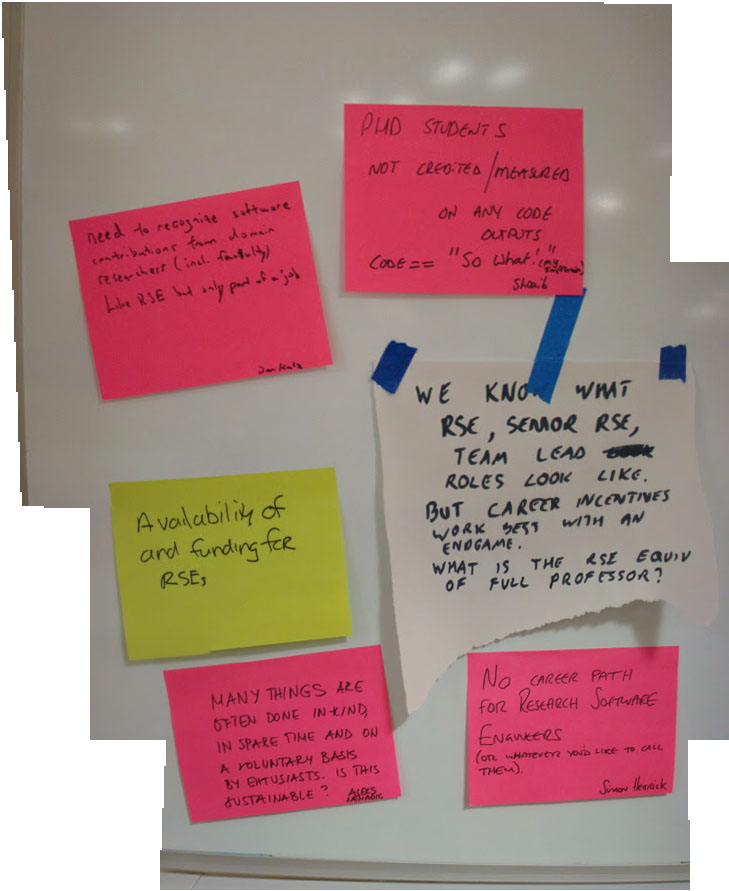 PHD STUDENTS
NOT CREDITED/MEASURED
ON ANY CODE
OUTPUTS
CODE == "So What!" (my
impression)
Shoaib
need to recognize software
contributions from domain
researchers (incl. faculty)
Like RSE but only part of a job
Dan Katz
WE KNOW WHAT
RSE, SENIOR RSE,
TEAM LEAD
ROLES LOOK LIKE.
BUT CAREER INCENTIVES
WORK BEST WITH AN
ENDGAME.
WHAT IS THE RSE EQUIV
OF FULL PROFESSOR?
Availability of
and funding for
RSEs
MANY THINGS ARE
OFTEN DONE IN-KIND,
IN SPARE TIME AND ON
A VOLUNTARY BASIS
BY ENTUSIASTS. IS THIS
SUSTAINABLE? ALEKS
NENADIC
NO CAREER PATH
FOR RESEARCH SOFTWARE
ENGINEERS
(OR WHATEVER YOU'D LIKE TO CALL
THEM).
Simon Hettrick